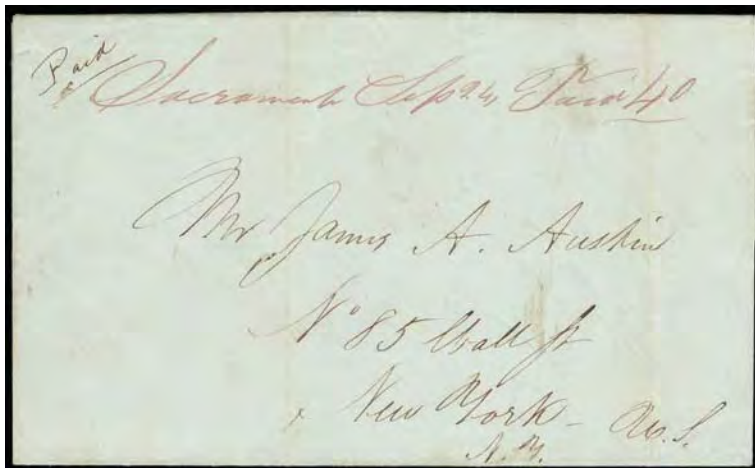 Paid
Sacramento Sep 24 Paid 40
Mr James A. Austin
No 85 Wall St
New York -
N.Y.